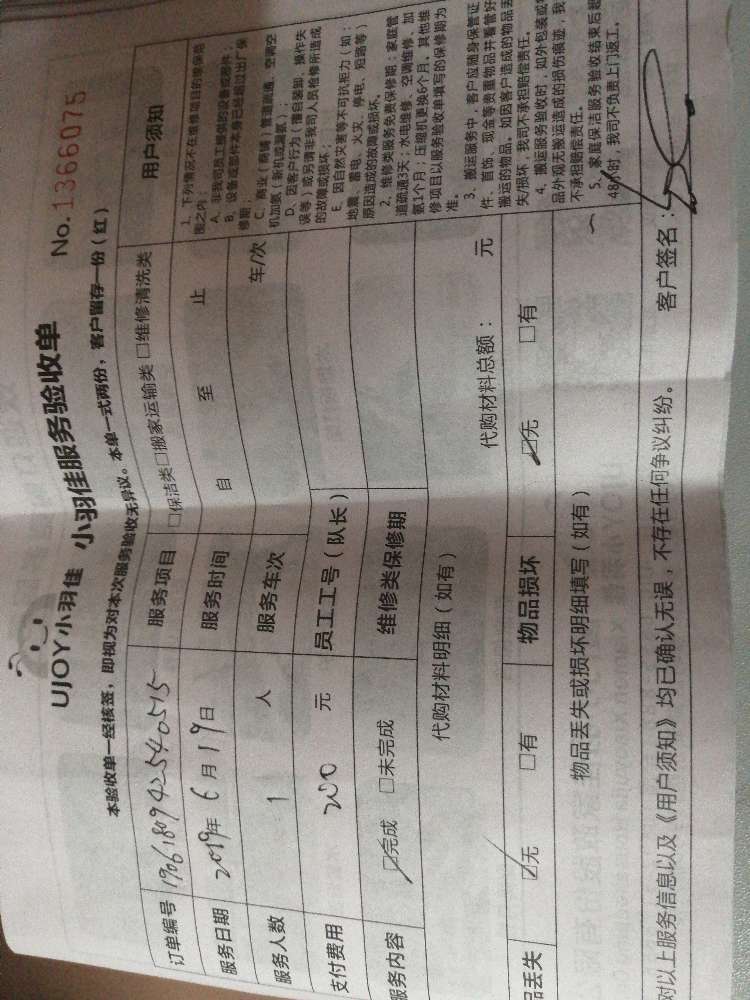 UJOY小羽佳 小羽佳服务验收单 No.1366075
本验收单一经核签，即视为对本次服务验收无异议。本单一式两份，客户留存一份（红）
订单编号 190618094254 0515 服务项目 □保洁类□搬家运输类 □维修清洗类
服务日期 2019年 6 月 19 日 服务时间 自 至 止
服务人数 1 人 服务车次 车/次
支付费用 200 元 员工工号（队长）
服务内容 ☑完成 □未完成 维修类保修期
代购材料明细（如有） 代购材料总额： 元
品丢失 ☑无 □有 物品损坏 ☑无 □有
物品丢失或损坏明细填写（如有）
用户须知
1、下列情况不在维修项目的保
围之内：
A、非我司员工提供的设备或器件；
B、设备或部件本身已经超过出厂保
修期；
C、商业（商铺）管道疏通、空调空
机加氨（新机或漏氨）；
D、因客户行为（擅自装卸、操作失
误等）或另请非我司人员检修所造成
的故障或损坏；
E、因自然灾害等不可抗拒力（如：
地震、雷电、火灾、停电、短路等）
原因造成的故障或损坏。
2、维修类服务免费保修期：家庭管
道疏通3天；水电维修、空调维修、加
氨1个月；压缩机更换6个月、其他维
修项目以服务验收单填写的保修期为
准。
3、搬运服务中，客户应随身保管证
件、首饰、现金等贵重物品并看管好
搬运的物品。如因客户造成的物品丢
失/损坏，我司不承担赔偿责任。
4、搬运服务验收时，如外包装或物
品外观无搬运造成的损伤痕迹，我
不承担赔偿责任。
5、家庭保洁服务验收结束后超
48小时，我司不负责上门返工。
对以上服务信息以及《用户须知》均已确认无误，不存在任何争议纠纷。 客户签名：